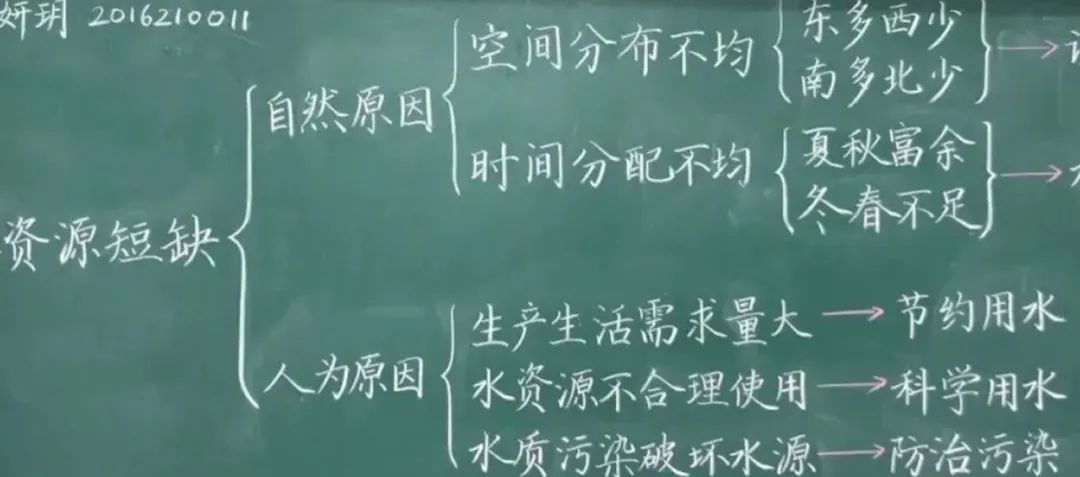 妍玥 2016210011
资源短缺
自然原因
空间分布不均
东多西少
南多北少
时间分配不均
夏秋富余
冬春不足
人为原因
生产生活需求量大 → 节约用水
水资源不合理使用 → 科学用水
水质污染破坏水源 → 防治污染